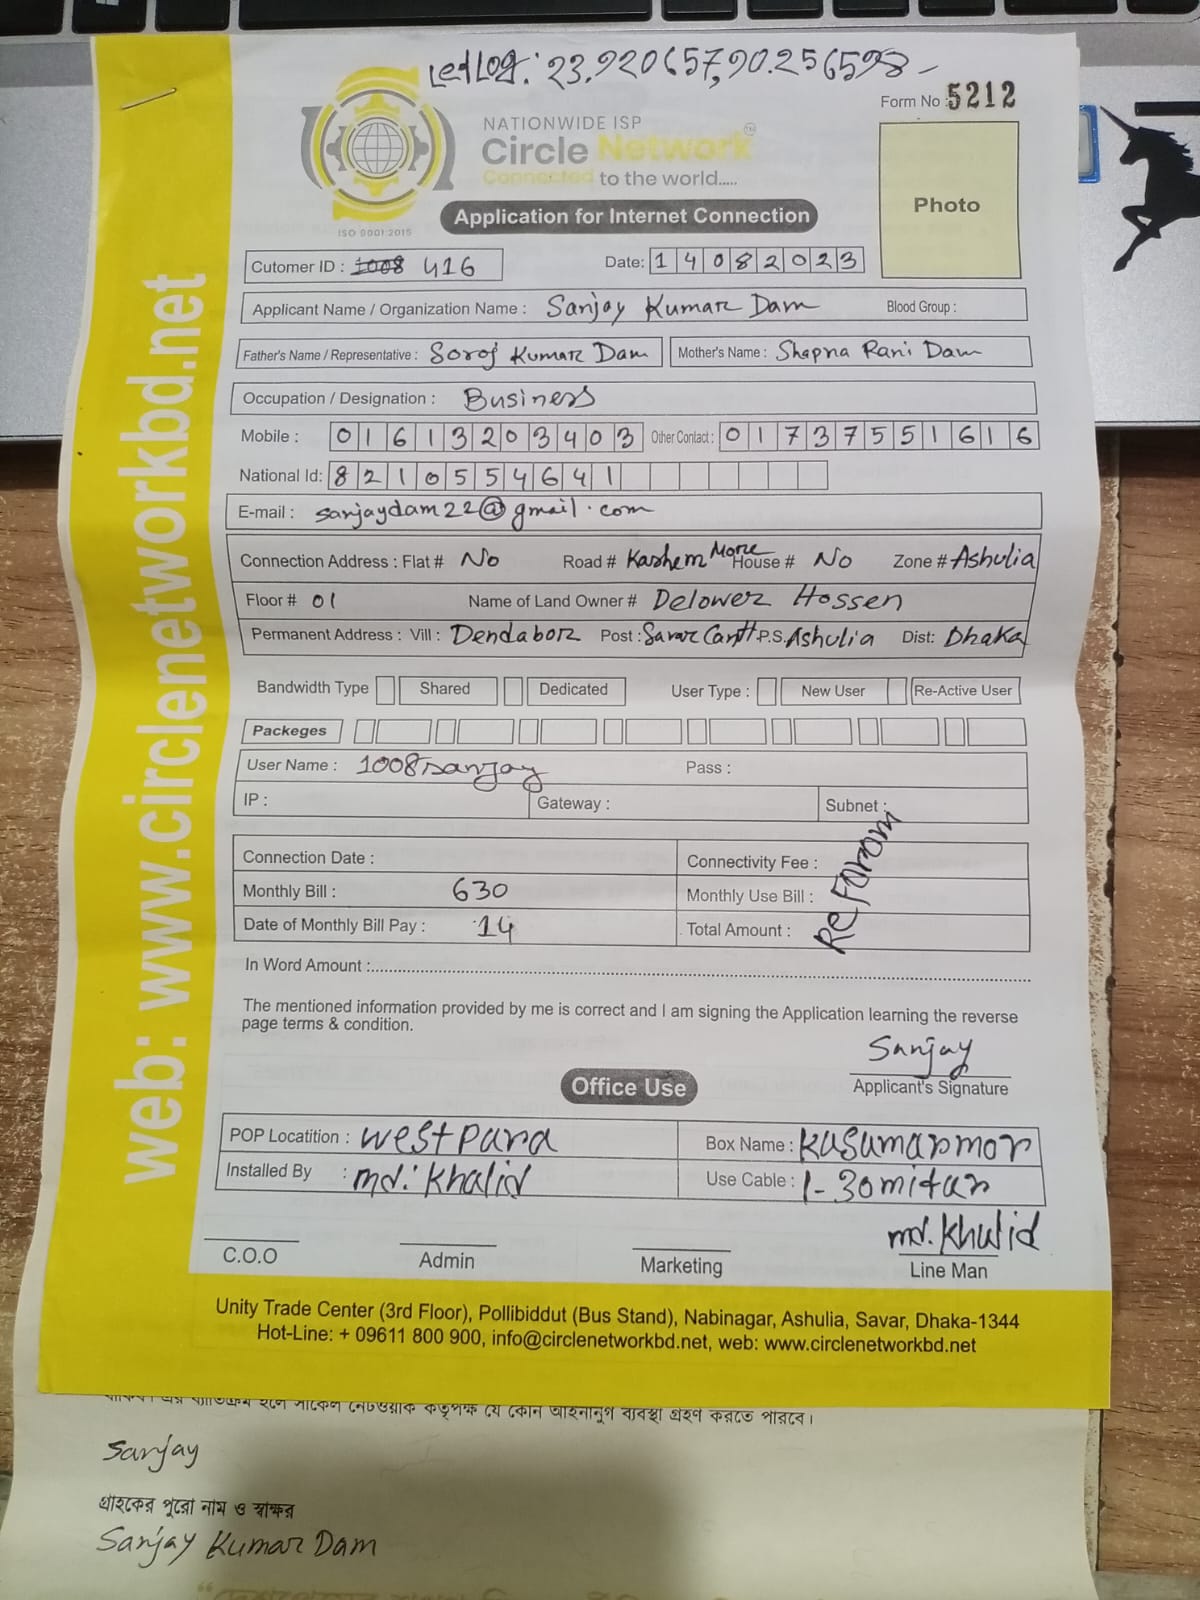 Let Log: 23.920657,90.256598
Form No : 5212
NATIONWIDE ISP
Circle Network TM
Connected to the world.....
ISO 9001:2015
Application for Internet Connection
Photo
Cutomer ID : 1008 416
Date: 14082023
Applicant Name / Organization Name : Sanjay Kumar Dam Blood Group :
Father's Name / Representative : Soroj Kumar Dam Mother's Name : Shapna Rani Dam
Occupation / Designation : Business
Mobile : 01613203403 Other Contact : 01737551616
National Id: 8210554641
E-mail : sanjaydam22@gmail.com
Connection Address : Flat # No Road # Kashem More House # No Zone # Ashulia
Floor # 01 Name of Land Owner # Delower Hossen
Permanent Address : Vill : Dendabor Post : Savar Cantt P.S. Ashulia Dist: Dhaka
Bandwidth Type Shared Dedicated User Type : New User Re-Active User
Packeges
User Name : 1008sanjay Pass :
IP : Gateway : Subnet :
Connection Date : Connectivity Fee :
Monthly Bill : 630 Monthly Use Bill :
Date of Monthly Bill Pay : 14 Total Amount :
Re Forom
In Word Amount :
The mentioned information provided by me is correct and I am signing the Application learning the reverse
page terms & condition.
Sanjay
Applicant's Signature
Office Use
POP Locatition : westpara Box Name : Kusumarmor
Installed By : md: Khalid Use Cable : 1-30mitar
md. Khalid
C.O.O Admin Marketing Line Man
Unity Trade Center (3rd Floor), Pollibiddut (Bus Stand), Nabinagar, Ashulia, Savar, Dhaka-1344
Hot-Line: + 09611 800 900, info@circlenetworkbd.net, web: www.circlenetworkbd.net
web: www.circlenetworkbd.net
সার্কেল নেটওয়ার্ক কর্তৃপক্ষ যে কোন আইনানুগ ব্যবস্থা গ্রহণ করতে পারবে।
Sanjay
গ্রাহকের পুরো নাম ও স্বাক্ষর
Sanjay Kumar Dam